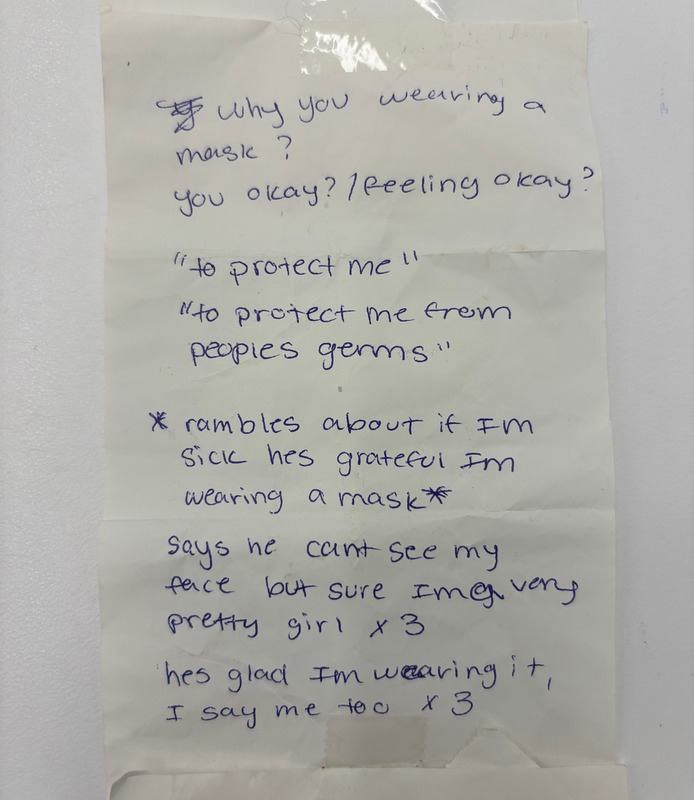 why you wearing a
mask ?
you okay? / feeling okay?
"to protect me"
"to protect me from
peoples germs"
* rambles about if Im
sick hes grateful Im
wearing a mask*
says he cant see my
face but sure Im a very
pretty girl x 3
hes glad Im wearing it,
I say me too x 3